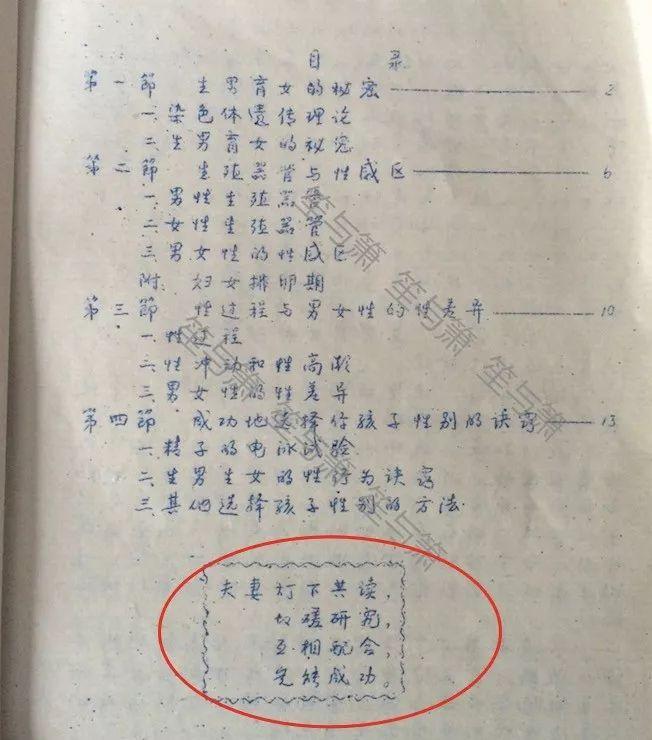 目 录
第一節 生男育女的秘密 2
一.染色体遗传理论
二.生男育女的秘密
第二節 生殖器管与性感区 6
一.男性生殖器管
二.女性生殖器管
三.男女性的性感区
附: 妇女排卵期
第三節 性过程与男女性的性差异 10
一.性过程
二.性冲动和性高潮
三.男女性的性差异
第四節 成功地选择你孩子性别的诀窍 13
一.精子的电泳试验
二.生男生女的性行为诀窍
三.其他选择孩子性别的方法
夫妻灯下共读,
切磋研究,
互相配合,
定能成功。
笙与箫 笙与箫 笙与箫
笙与箫 笙与箫 笙与箫